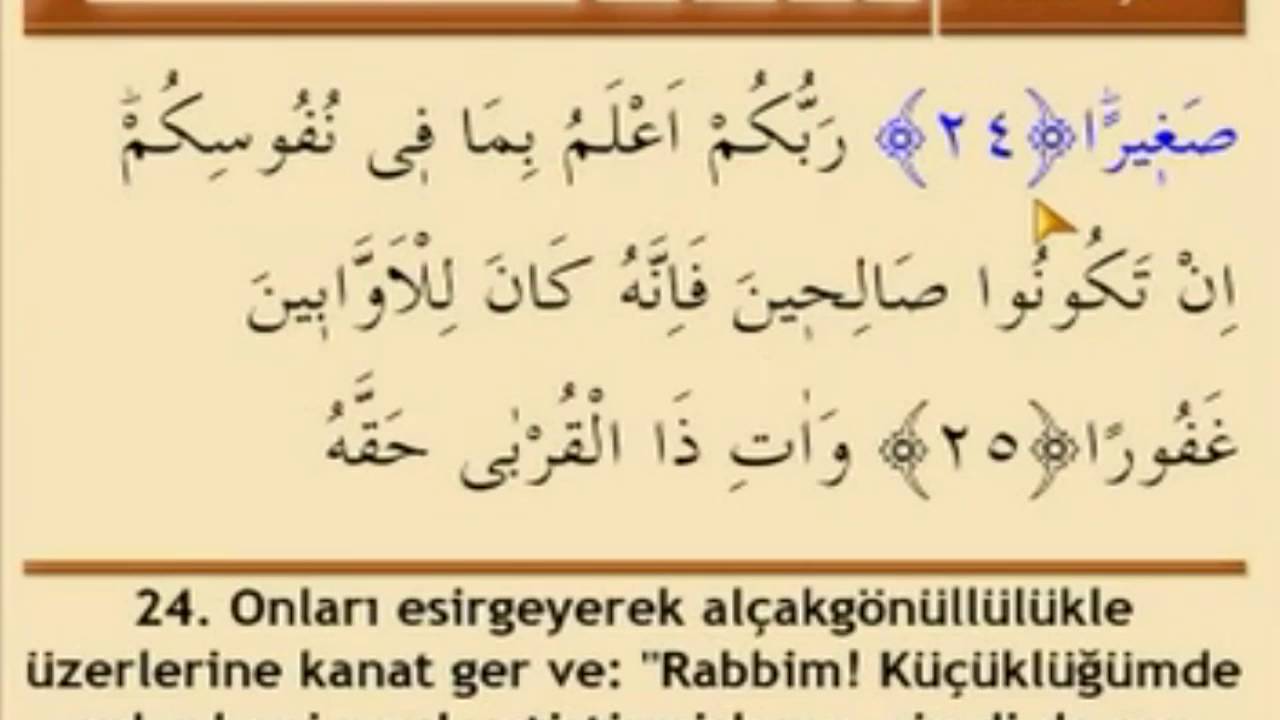 صَغ۪يرًّاۜ ﴿٢٤﴾ رَبُّكُمْ اَعْلَمُ بِمَا ف۪ي نُفُوسِكُمْۜ
اِنْ تَكُونُوا صَالِح۪ينَ فَاِنَّهُ كَانَ لِلْاَوَّاب۪ينَ
غَفُورًا ﴿٢٥﴾ وَاٰتِ ذَا الْقُرْبٰى حَقَّهُ
24. Onları esirgeyerek alçakgönüllülükle
üzerlerine kanat ger ve: "Rabbim! Küçüklüğümde